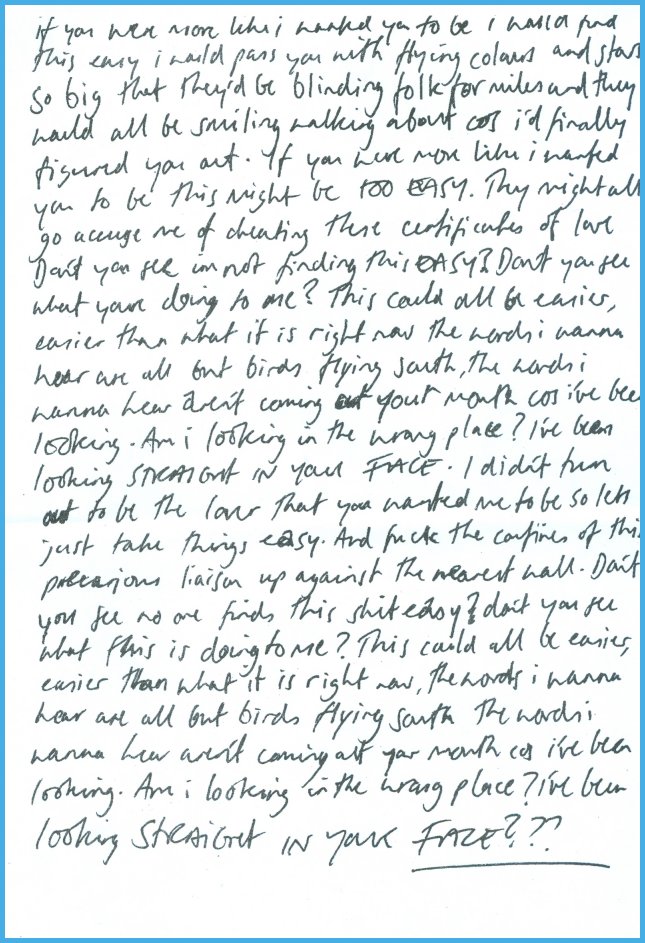 if you were more like i wanted you to be i would find
this easy i would pass you with flying colours and stars
so big that they'd be blinding folk for miles and they
would all be smiling walking about cos i'd finally
figured you out. If you were more like i wanted
you to be this might be TOO EASY. They might all
go accuse me of cheating these certificates of love
Don't you see im not finding this EASY? Don't you see
what you're doing to me? This could all be easier,
easier than what it is right now the words i wanna
hear are all but birds flying south, the words i
wanna hear aren't coming out your mouth cos i've been
looking. Am i looking in the wrong place? I've been
looking STRAIGHT IN YOUR FACE. I didn't turn
out to be the lover that you wanted me to be so lets
just take things easy. And fuck the confines of this
precarious liaison up against the nearest wall. Don't
you see no one finds this shit easy? don't you see
what this is doing to me? This could all be easier,
easier than what it is right now, the words i wanna
hear are all but birds flying south the words i
wanna hear aren't coming out your mouth cos i've been
looking. Am i looking in the wrong place? i've been
looking STRAIGHT IN YOUR FACE???